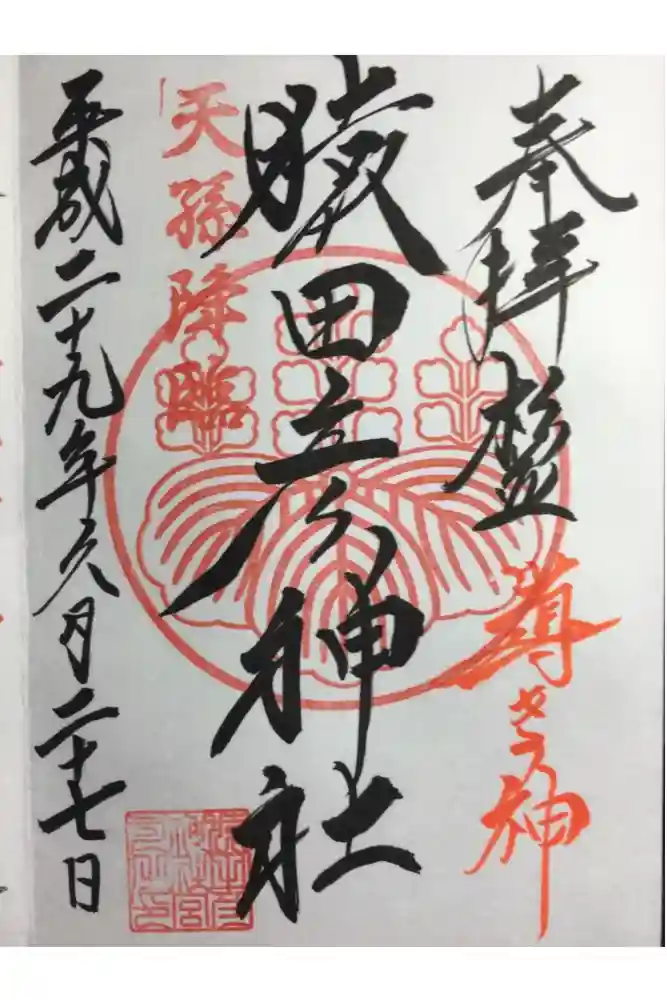 奉拝
猿田彦神社
天孫降臨
平成二十九年六月二十七日